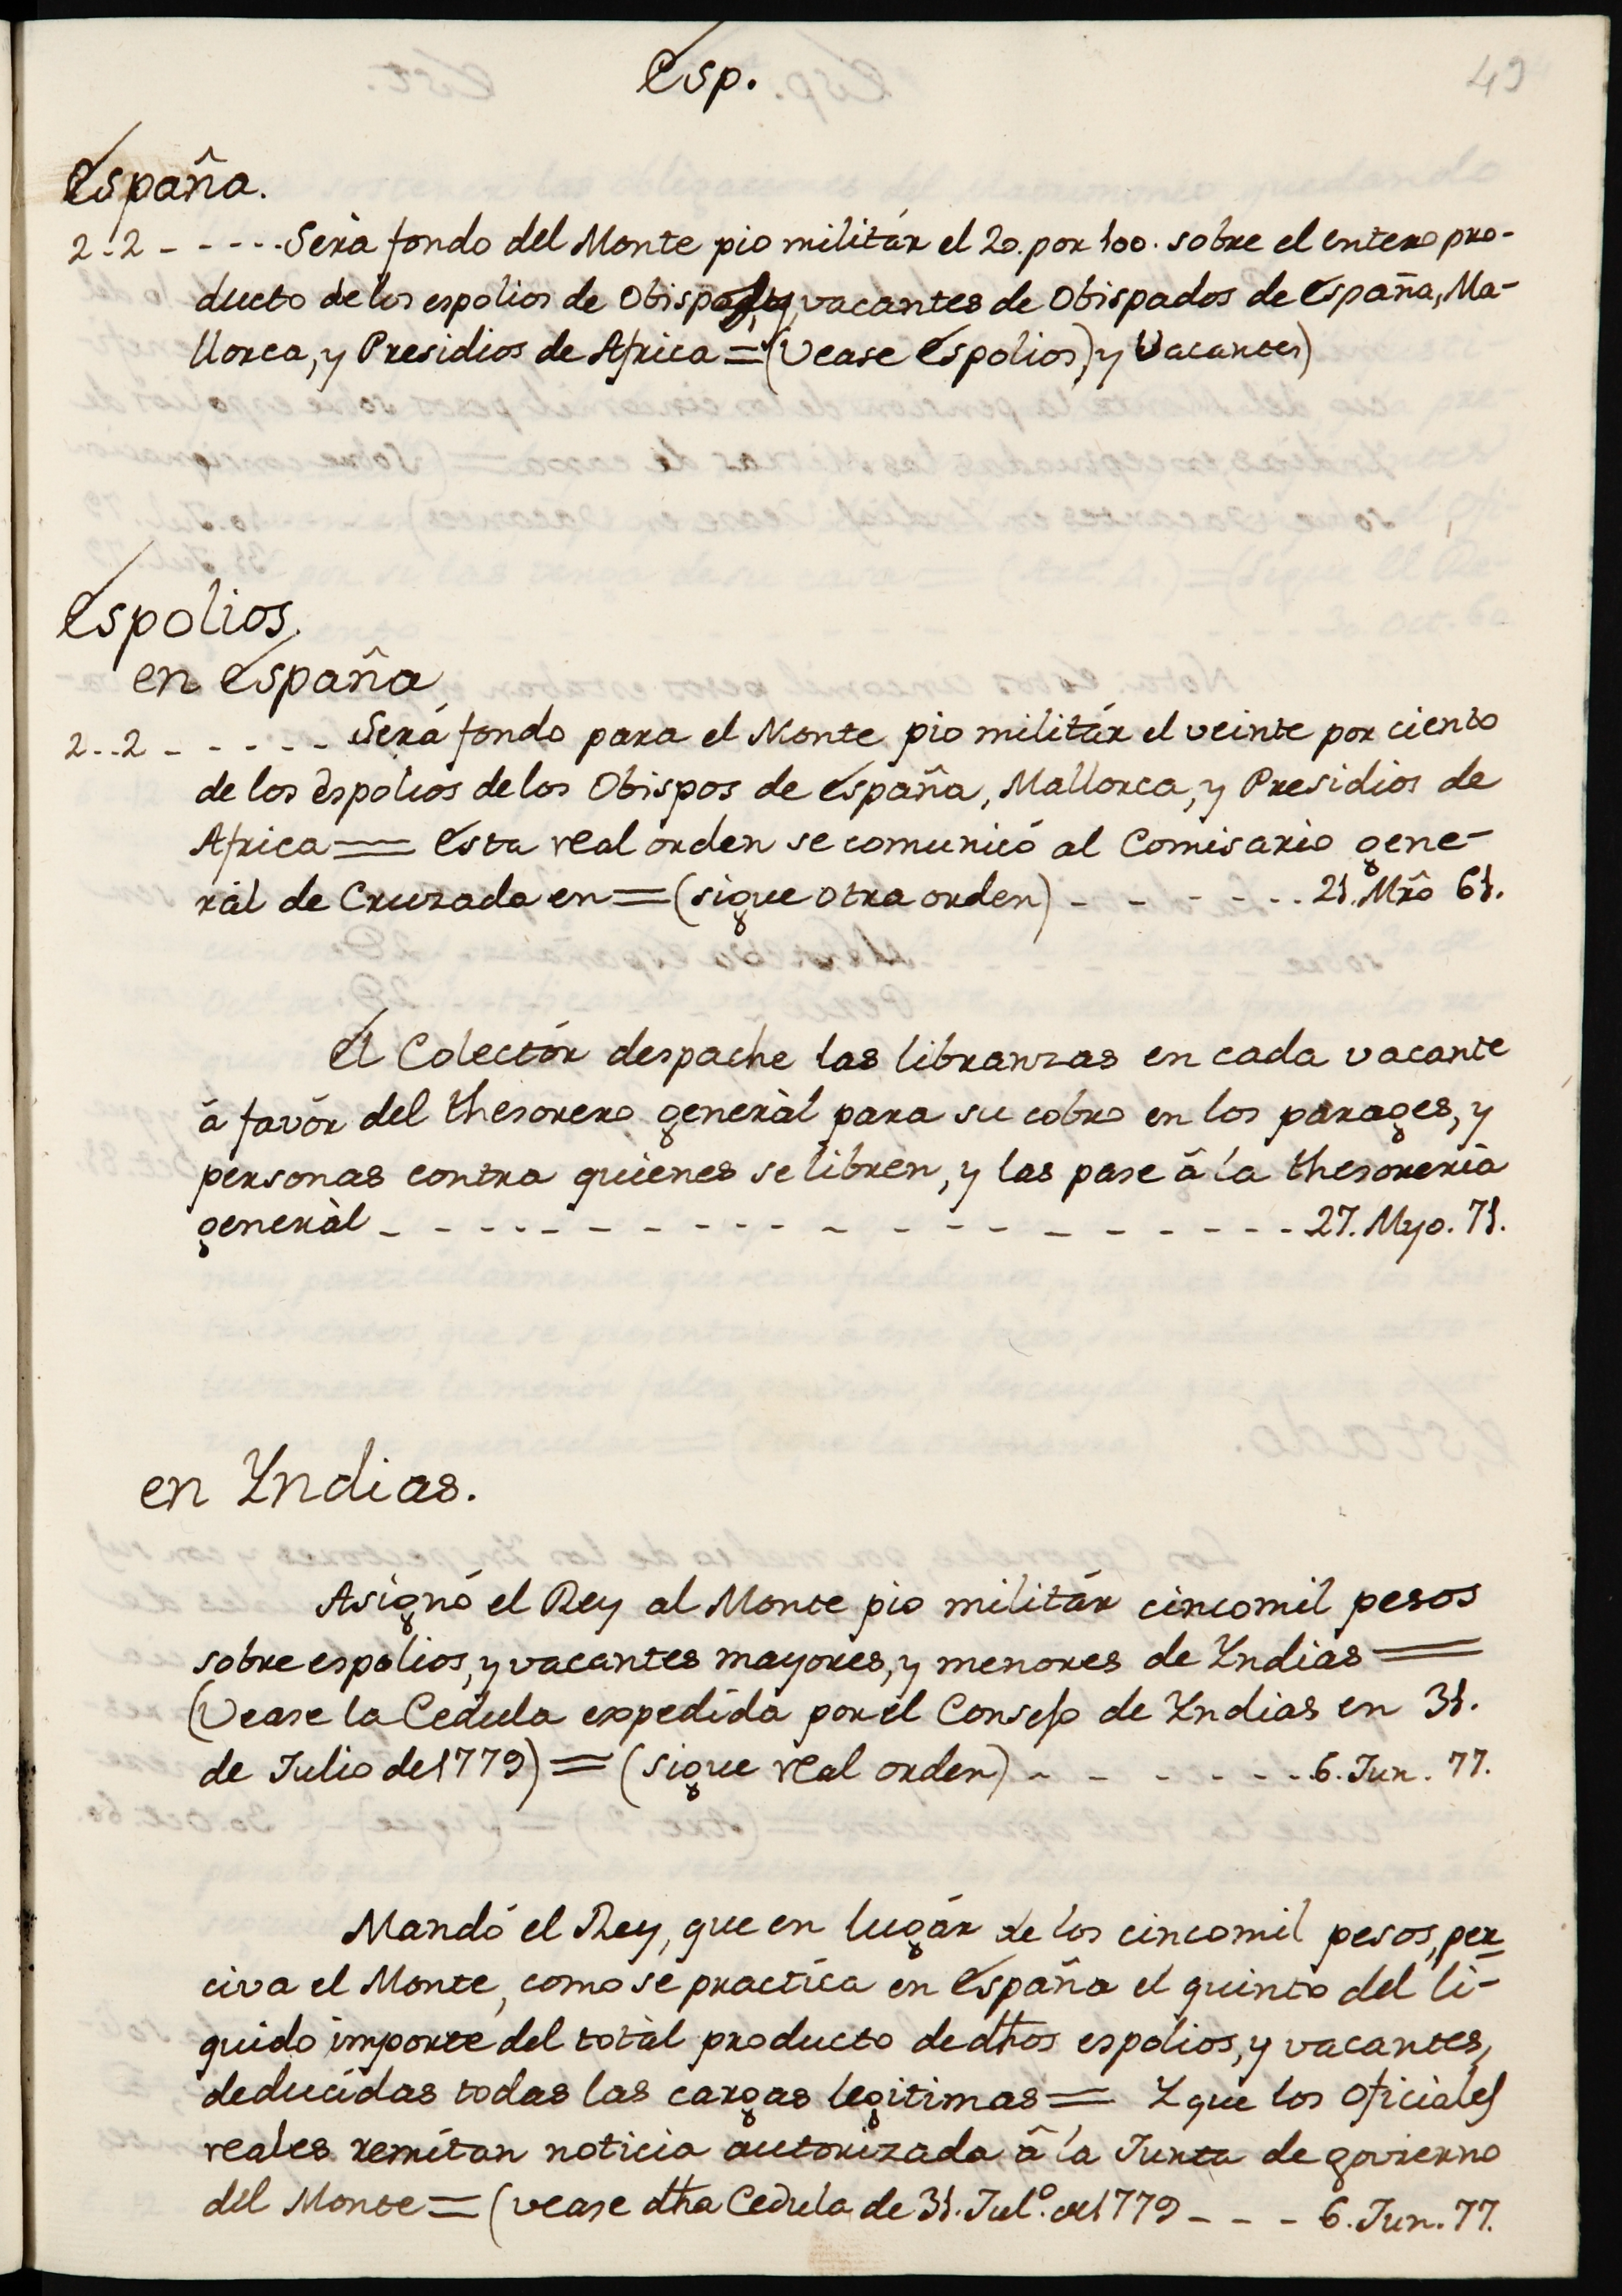 Esp.
49
España.
2..2 - - - - - Será fondo del Monte pio militár el 20. por 100. sobre el entero pro-
ducto de los espolios de Obispos, y vacantes de Obispados de España, Ma-
llorca, y Presidios de Africa = (Vease Espolios, y Vacantes)
Espolios,
en España
2..2 - - - - - Será fondo para el Monte pio militár el veinte por ciento
de los espolios de los Obispos de España, Mallorca, y Presidios de
Africa = Esta real orden se comunicó al Comisario gene-
ràl de Cruzada en = (sigue otra orden) - - - - - - 21. Mrô 61.
El Colectór despache las libranzas en cada vacante
á favór del thesorero generàl para su cobro en los parages, y
personas contra quienes se libren, y las pase â la thesoreria
generàl - - - - - - - - - - - - - - - - - 27. Myo. 71.
en Yndias.
Asignó el Rey al Monte pio militár cincomil pesos
sobre espolios, y vacantes mayores, y menores de Yndias =
(Vease la Cedula expedida por el Consejo de Yndias en 31.
de Julio de 1779) = (sigue real orden) - - - - - - - 6. Jun. 77.
Mandó el Rey, que en lugár de los cincomil pesos, per=
civa el Monte, como se practica en España el quinto del li-
quido importe del totàl producto de dhos espolios, y vacantes,
deducidas todas las cargas legitimas = Y que los Oficiales
reales remitan noticia autorizada â la Junta de govierno
del Monte = (vease dha Cedula de 31. Jul.º de 1779 - - - 6. Jun. 77.